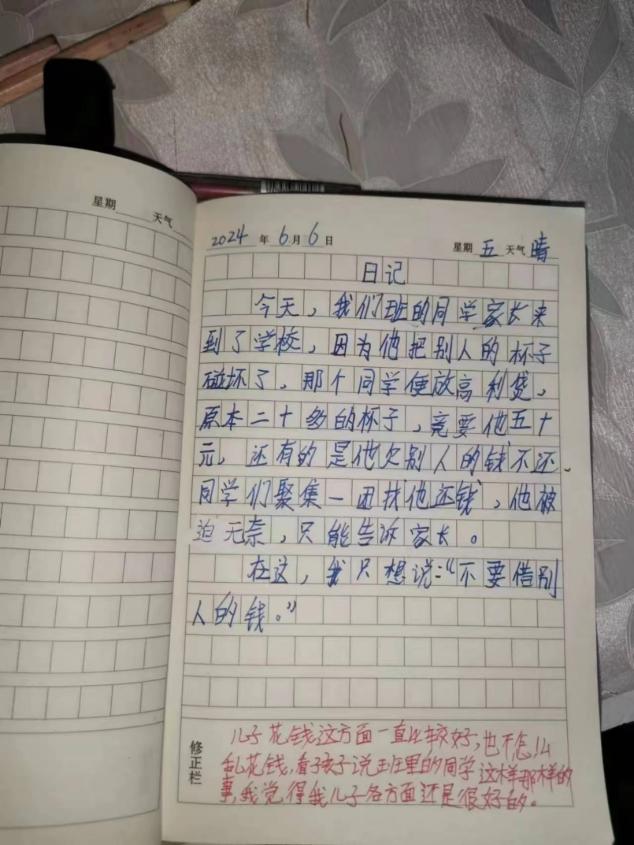 星期 天气
2024 年 6 月 6 日 星期 五 天气 晴
日记
今天，我们班的同学家长来
到了学校，因为他把别人的杯子
碰坏了，那个同学便放高利贷，
原本二十多的杯子，竟要他五十
元，还有的是他欠别人的钱不还、
同学们聚集一团找他还钱，他被
迫无奈，只能告诉家长。
在这，我只想说：“不要借别
人的钱。”
修正栏
儿子花钱这方面一直比较好，也不怎么
乱花钱，看了孩子说班里的同学这样那样的
事，我觉得我儿子各方面还是很好的。